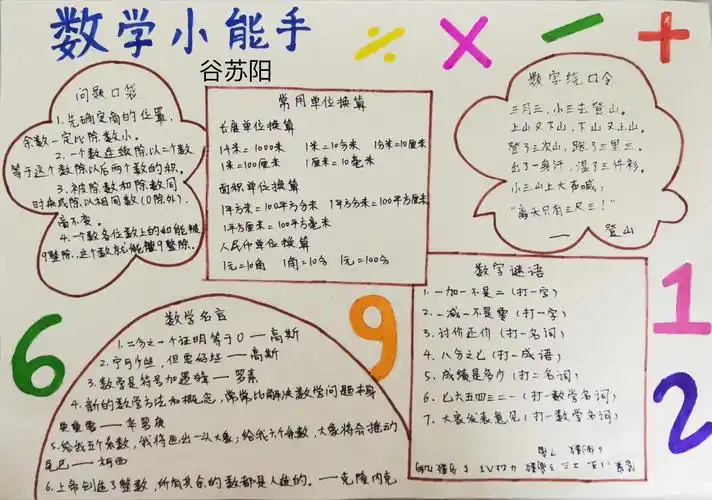 数学小能手
谷苏阳
÷ × − +
问题口袋
1.先确定商的位置,
余数一定比除数小。
2.一个数连续除以二个数
等于这个数除以后两个数的积。
3.被除数和除数同
时乘或除以相同数(0除外),
商不变。
4.一个数各位数上的和能被
9整除,这个数就能被9整除。
常用单位换算
长度单位换算
1千米=1000米 1米=10分米 1分米=10厘米
1米=100厘米 1厘米=10毫米
面积单位换算
1平方米=100平方分米 1平方分米=100平方厘米
1平方厘米=100平方毫米
人民币单位换算
1元=10角 1角=10分 1元=100分
数字绕口令
三月三,小三去登山。
上山又下山,下山又上山。
登了三次山,跑了三里三。
出了一身汗,湿了三件衫。
小三山上大声喊:
“离天只有三尺三!”
— 登山
6
9
1
2
数学名言
1.二分之一个证明等于0——高斯
2.宁可少些,但要好些——高斯
3.数学是符号加逻辑——罗素
4.新的数学方法和概念,常常比解决数学问题本身
更重要——华罗庚
5.给我五个系数,我将画出一头大象;给我六个系数,大象将会摇动
尾巴——柯西
6.上帝创造了整数,所有其余的数都是人造的。——克隆内克
数字谜语
1.一加一不是二(打一字)
2.一减一不是零(打一字)
3.讨价还价(打一名词)
4.八分之七(打一成语)
5.成绩是多少(打二名词)
6.七六五四三二一(打一数学名词)
7.大家发表意见(打一数学名词)